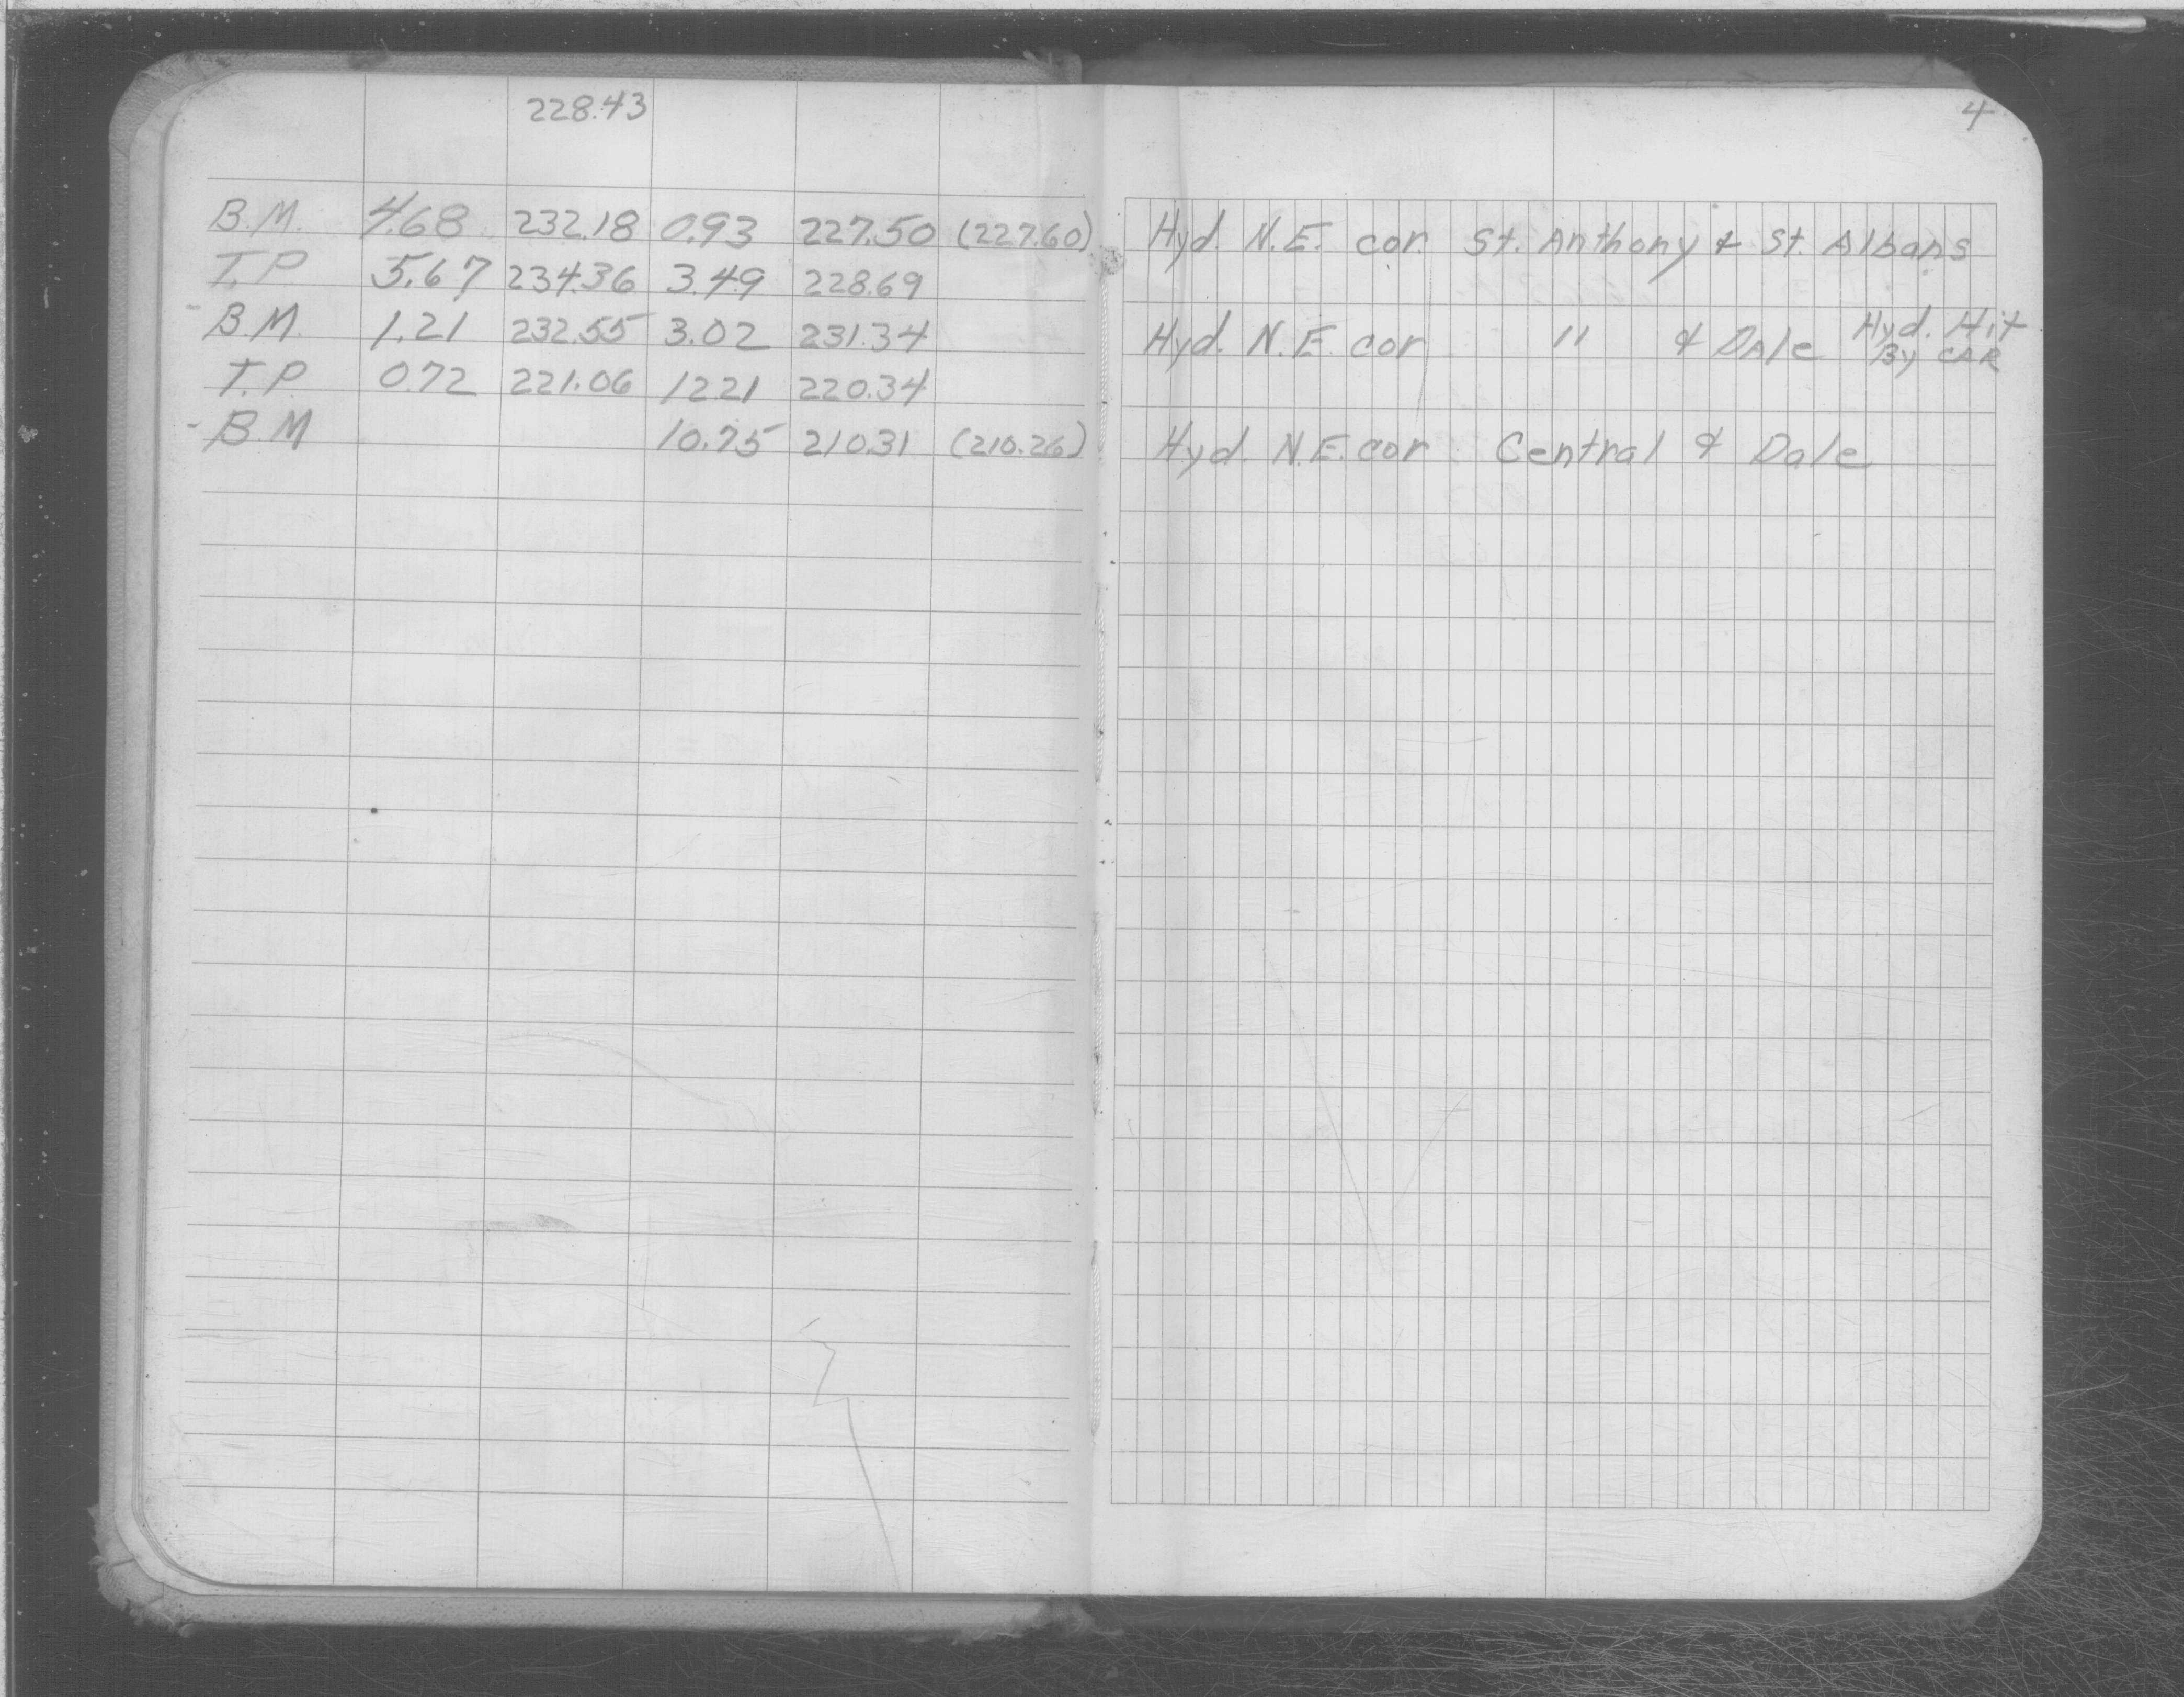 228.43
4
B.M. 4.68 232.18 0.93 227.50 (227.60) Hyd. N.E. cor. St. Anthony & St. Albans
T.P. 5.67 234.36 3.49 228.69
- B.M. 1.21 232.55 3.02 231.34 Hyd. N.E. cor " & Dale Hyd. Hit
By CAR
T.P. 0.72 221.06 12 21 220.34
- B.M 10.75 210.31 (210.26) Hyd. N.E. cor. Central & Dale